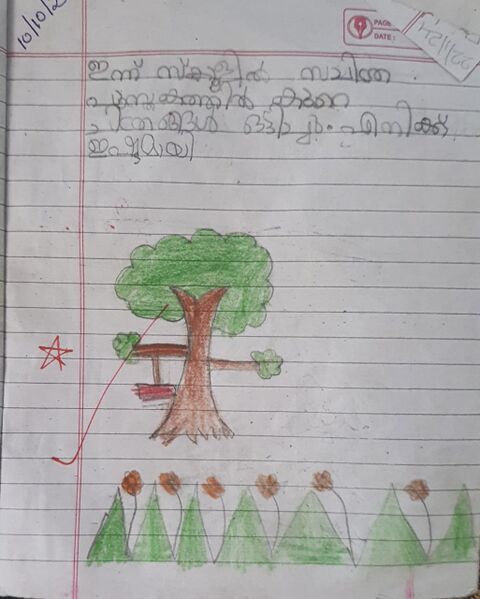 10/10/2
PAGE
DATE:
22/11/24
ഇന്ന് സ്കൂളിൽ സചിത്ര
പുസ്തകത്തിൽ കുറെ
ചിത്രങ്ങൾ ഒട്ടിച്ചു. എനിക്ക്
ഇഷ്ടമായി